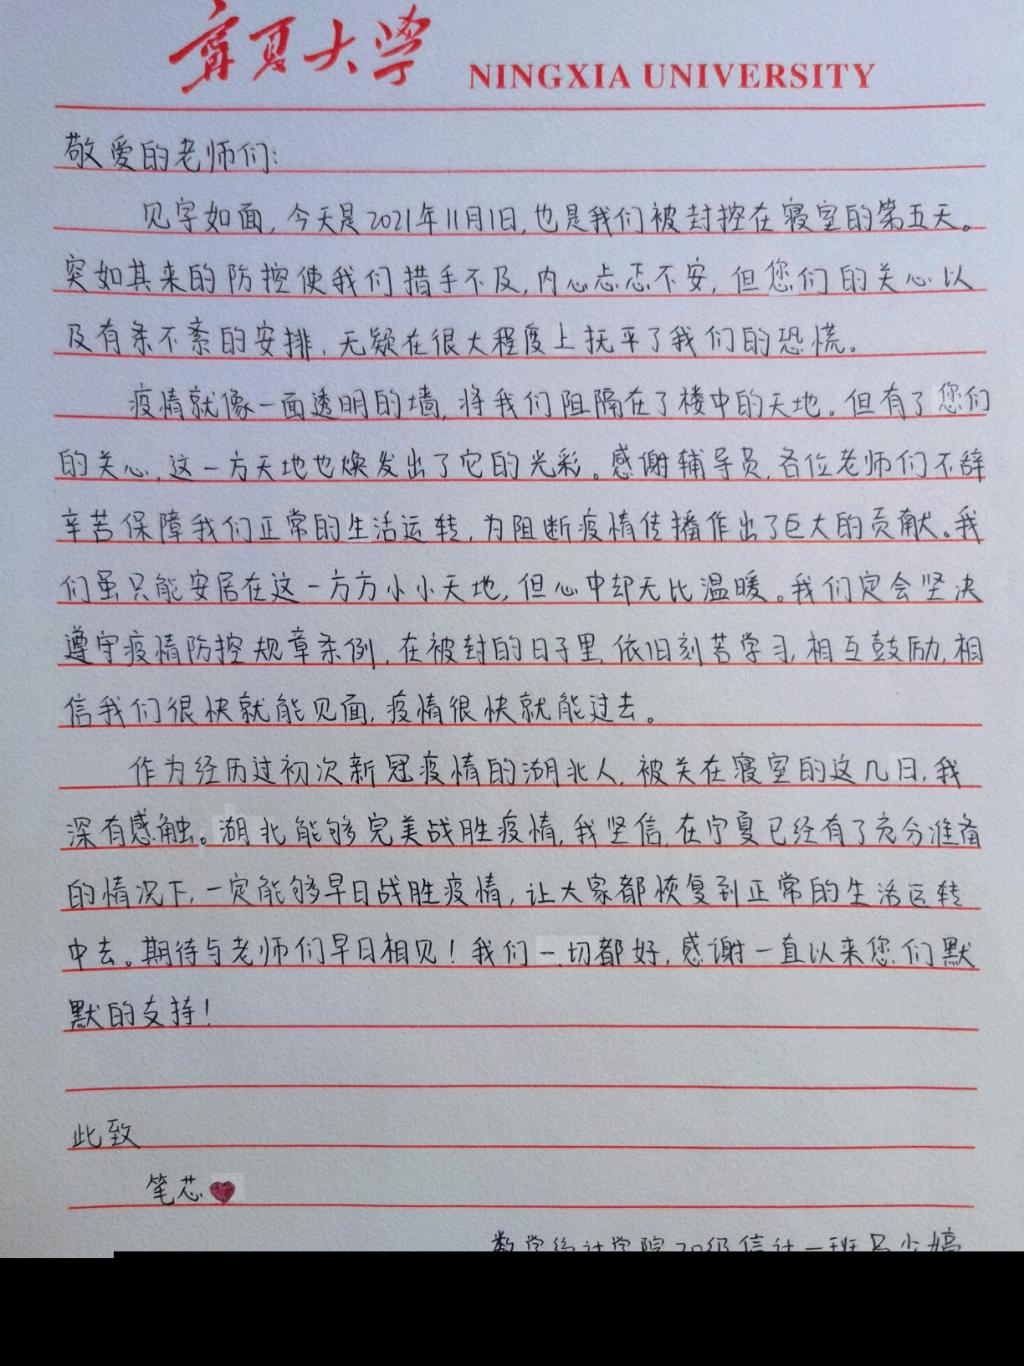 宁夏大学 NINGXIA UNIVERSITY
敬爱的老师们:
见字如面,今天是2021年11月1日,也是我们被封控在寝室的第五天。
突如其来的防控使我们措手不及,内心忐忑不安,但您们的关心以
及有条不紊的安排,无疑在很大程度上抚平了我们的恐慌。
疫情就像一面透明的墙,将我们阻隔在了楼中的天地。但有了您们
的关心,这一方天地也焕发出了它的光彩。感谢辅导员,各位老师们不辞
辛苦保障我们正常的生活运转,为阻断疫情传播作出了巨大的贡献。我
们虽只能安居在这一方方小小天地,但心中却无比温暖。我们定会坚决
遵守疫情防控规章条例,在被封的日子里,依旧刻苦学习,相互鼓励,相
信我们很快就能见面,疫情很快就能过去。
作为经历过初次新冠疫情的湖北人,被关在寝室的这几日,我
深有感触。湖北能够完美战胜疫情,我坚信,在宁夏已经有了充分准备
的情况下,一定能够早日战胜疫情,让大家都恢复到正常的生活运转
中去。期待与老师们早日相见!我们一切都好,感谢一直以来您们默
默的支持!
此致
笔芯
数学统计学院20级信计一班